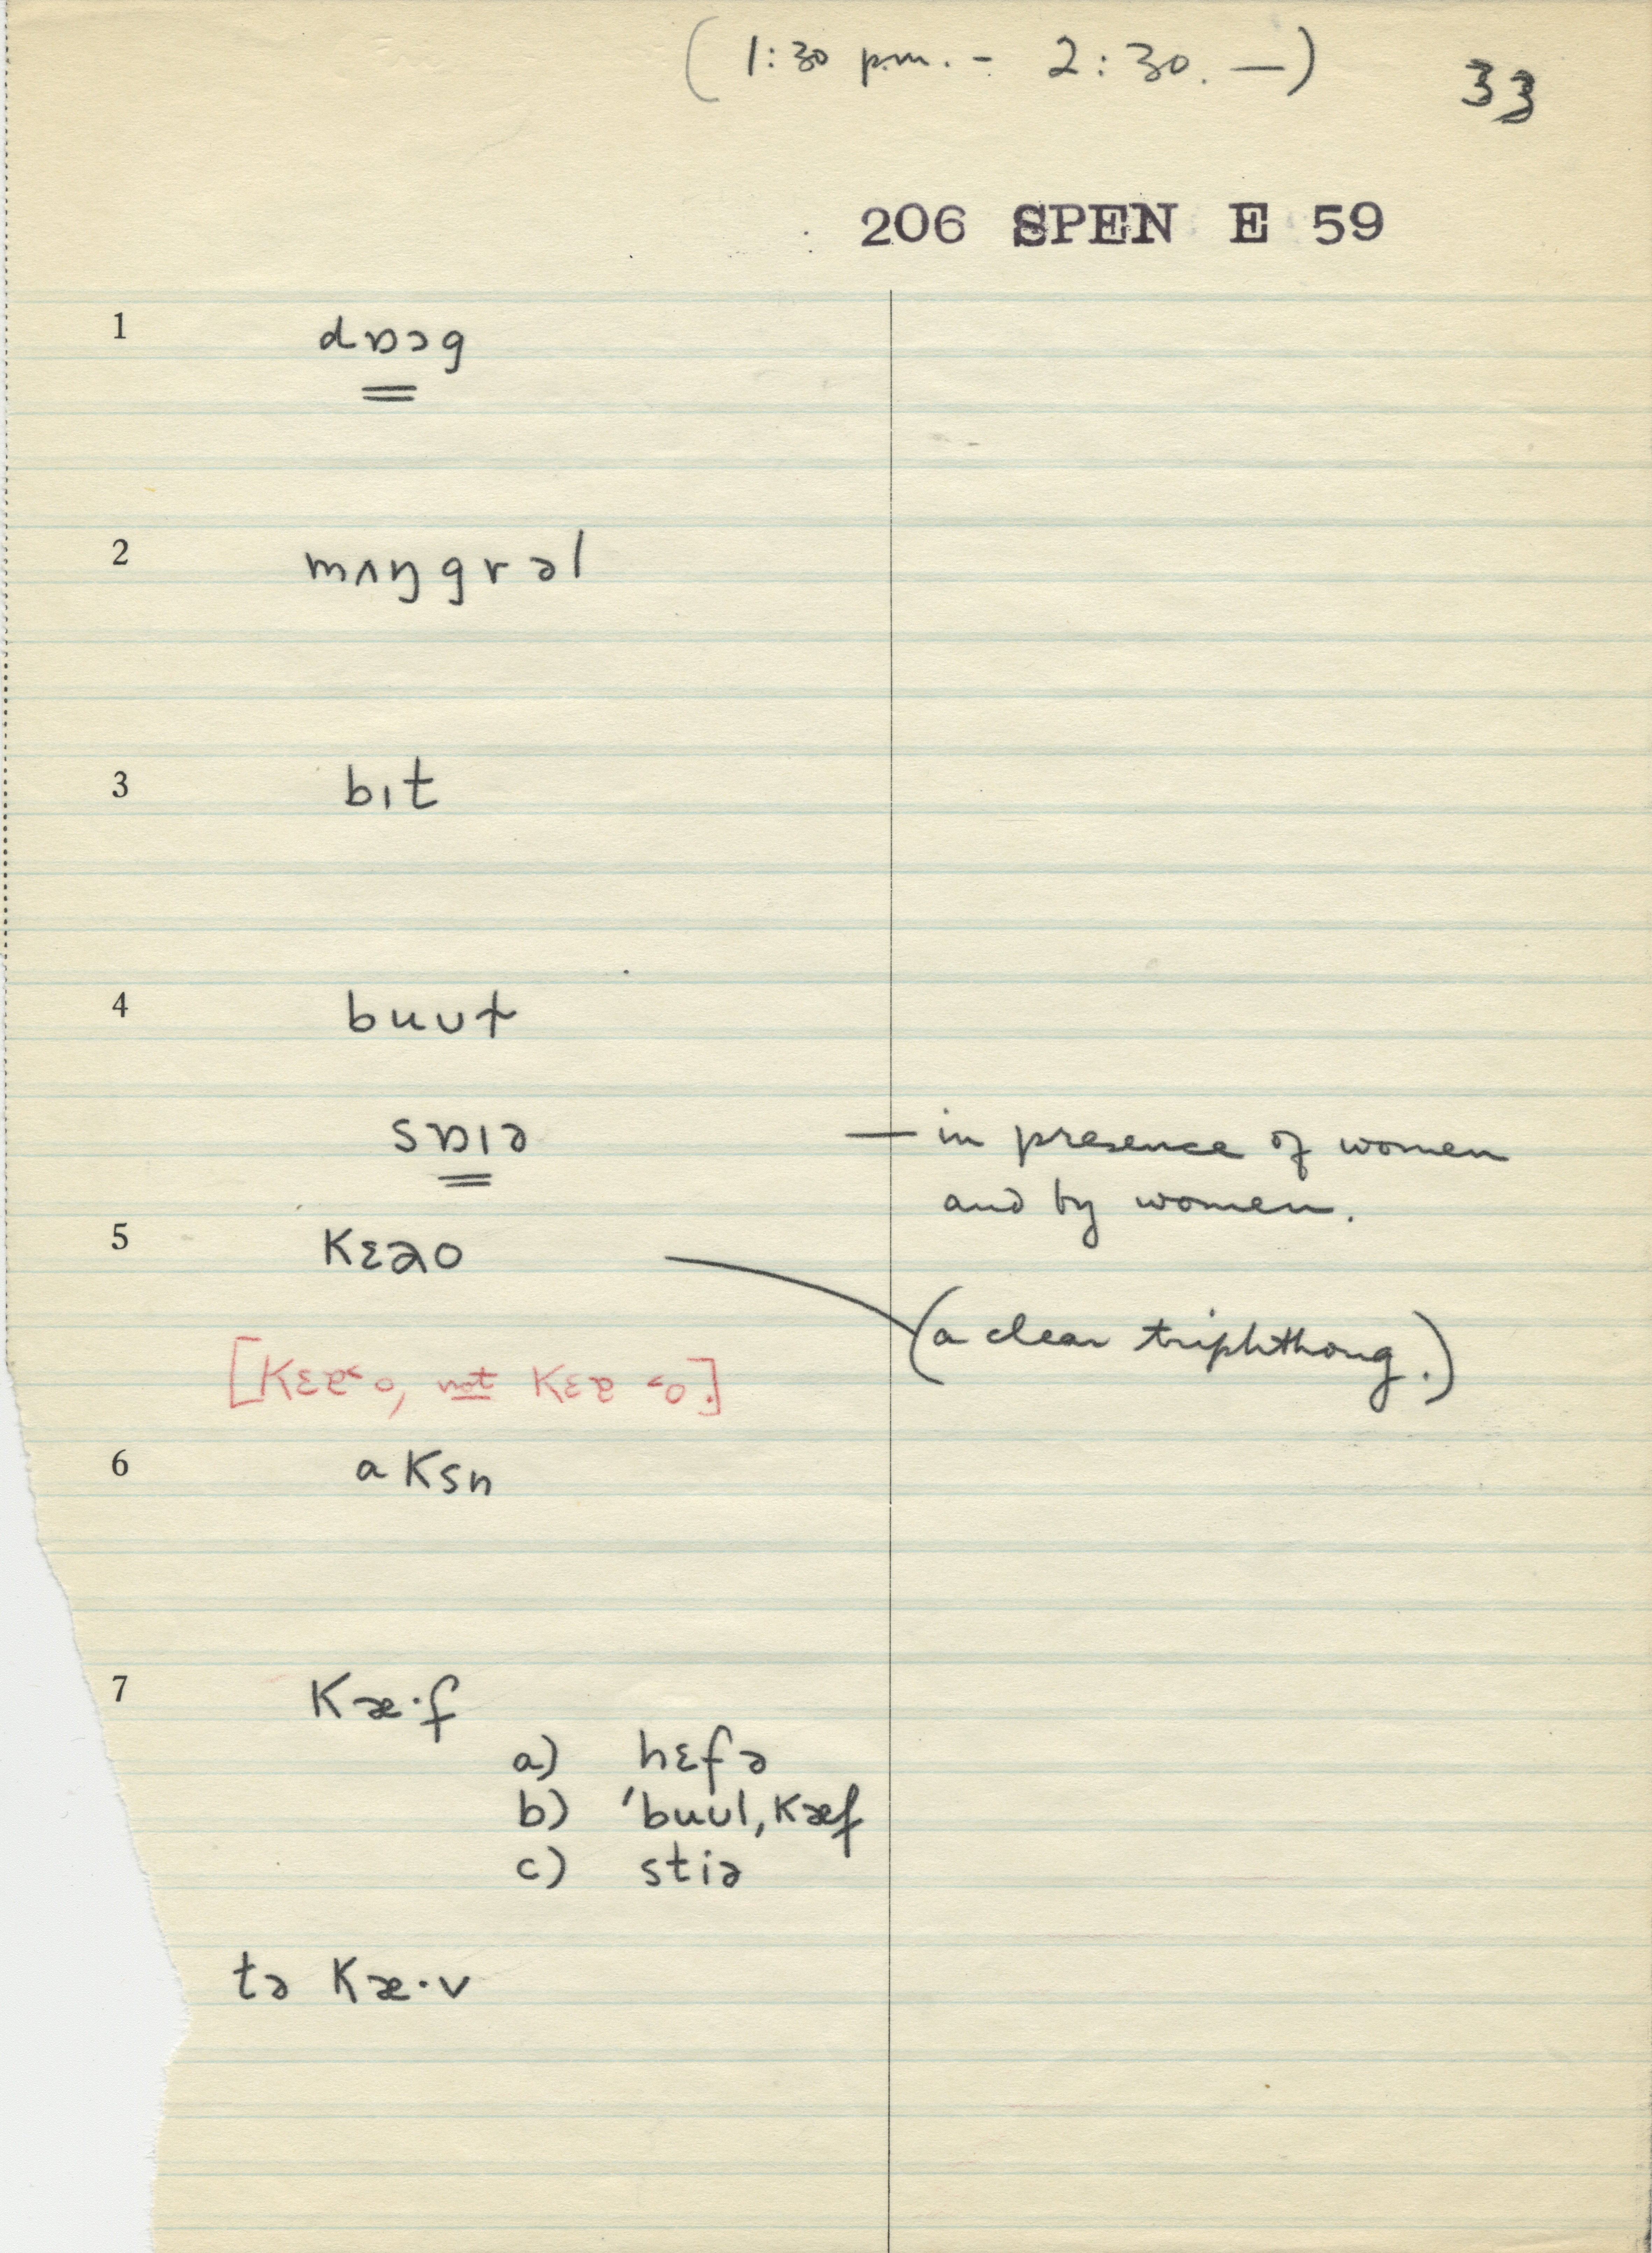 (1:30 p.m. - 2:30. —) 33
206 SPEN E 59
1 dɒɔg
2 mʌŋgrəl
3 bɪt
4 buʊt
sɒɪə — in presence of women
and by women.
5 Kɛəo
(a clear triphthong.)
[Kɛɐ˂o, not Kɛɐ ˂o.]
6 aksn
7 Kæ·f
a) hɛfə
b) ˈbuʊl,Kæf
c) stiə
tə Kæ·v